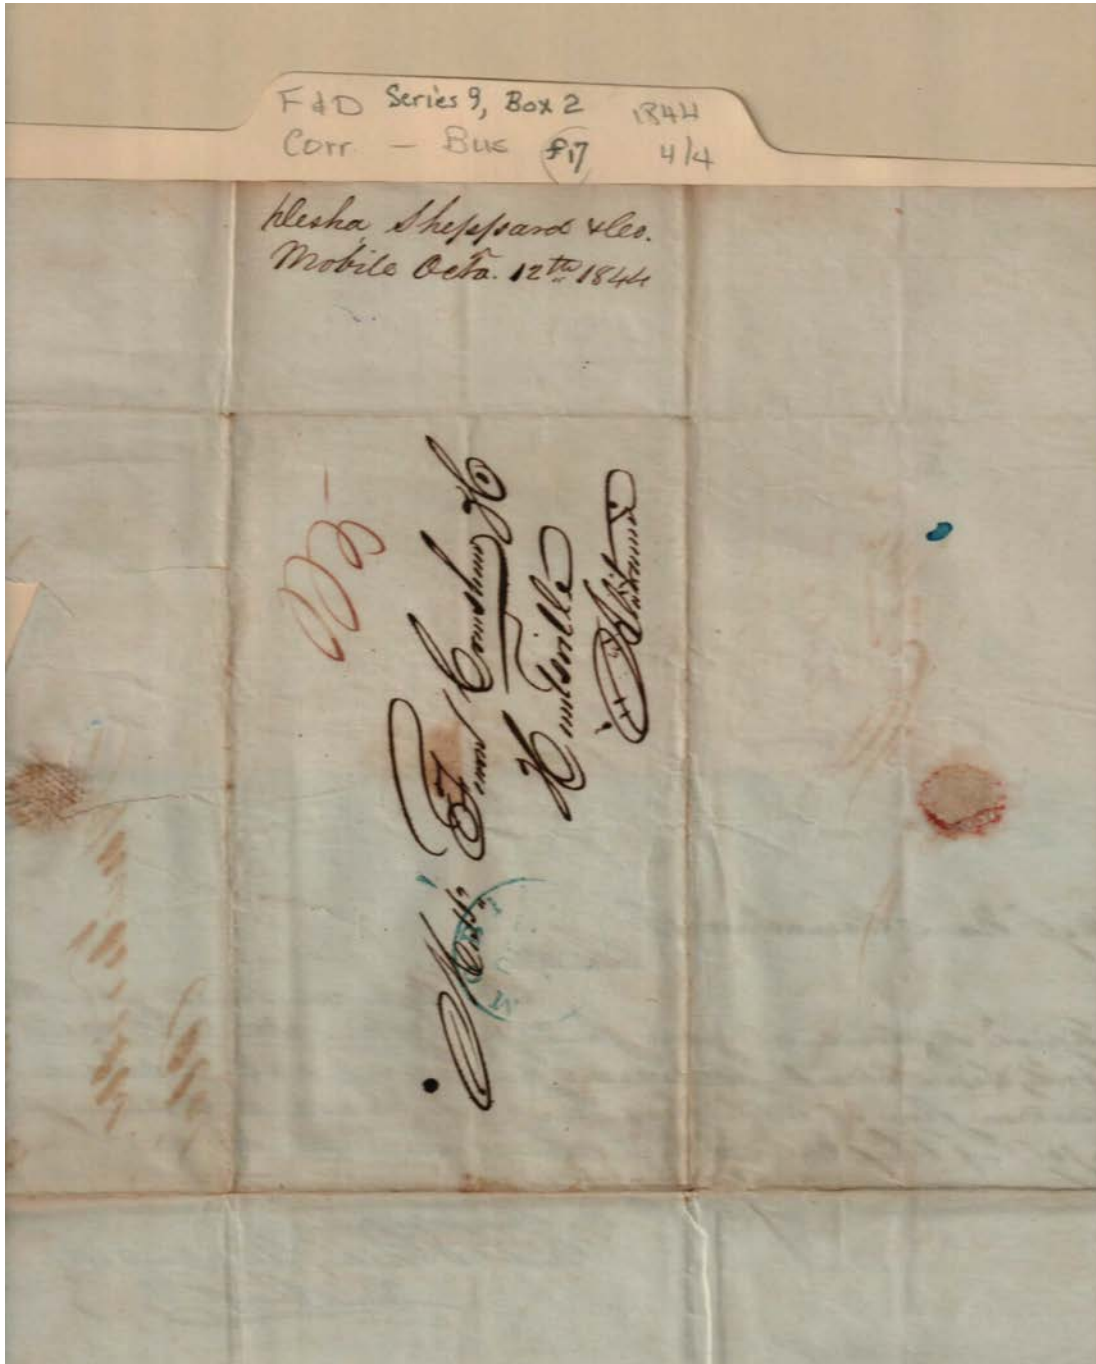 F&D Series 9, Box 2 1844
Corr. — Bus f17 4/4
Desha, Sheppard & Co.
Mobile Octr. 12th 1844
Messrs Fearn Crenshaw & Co
Huntsville
Alabama